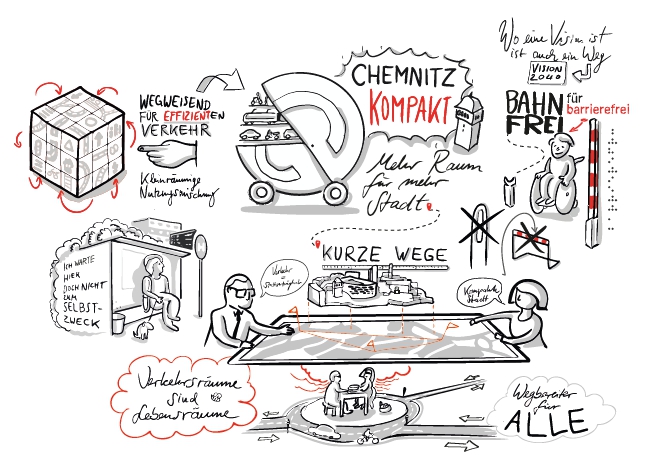 Wo eine Vision ist
ist auch ein Weg
VISION
2040
CHEMNITZ
KOMPAKT
WEGWEISEND
FÜR EFFIZIENTEN
VERKEHR
Kleinräumige
Nutzungsmischung
BAHN
FREI
für
barrierefrei
Mehr Raum
für mehr
Stadt
ICH WARTE
HIER
DOCH NICHT
ZUM
SELBST-
ZWECK
KURZE WEGE
Verkehr
=
Kompakte
Stadt
Verkehrsräume
sind
Lebensräume
Wegbereiter
für
ALLE